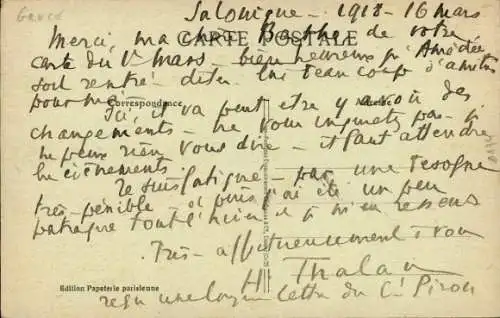 Grèce
Salonique - 1918 - 16 mars
CARTE POSTALE
Merci ma chère Berthe de votre
carte du 1er Mars - bien heureux qu'Amédée
soit rentré - dites lui beaucoup d'amitiés
pour moi
Correspondance
Ici il va peut être y avoir des
changements - ne vous inquiétez pas - je
ne peux rien vous dire - il faut attendre
les événements
Je suis fatigué - par une besogne
très pénible - et puis j'ai été un peu
patraque tout l'hiver et je m'en ressens
Très affectueusement à vous
H Thalam
Edition Papeterie parisienne
reçu une longue lettre du Ct Pirou